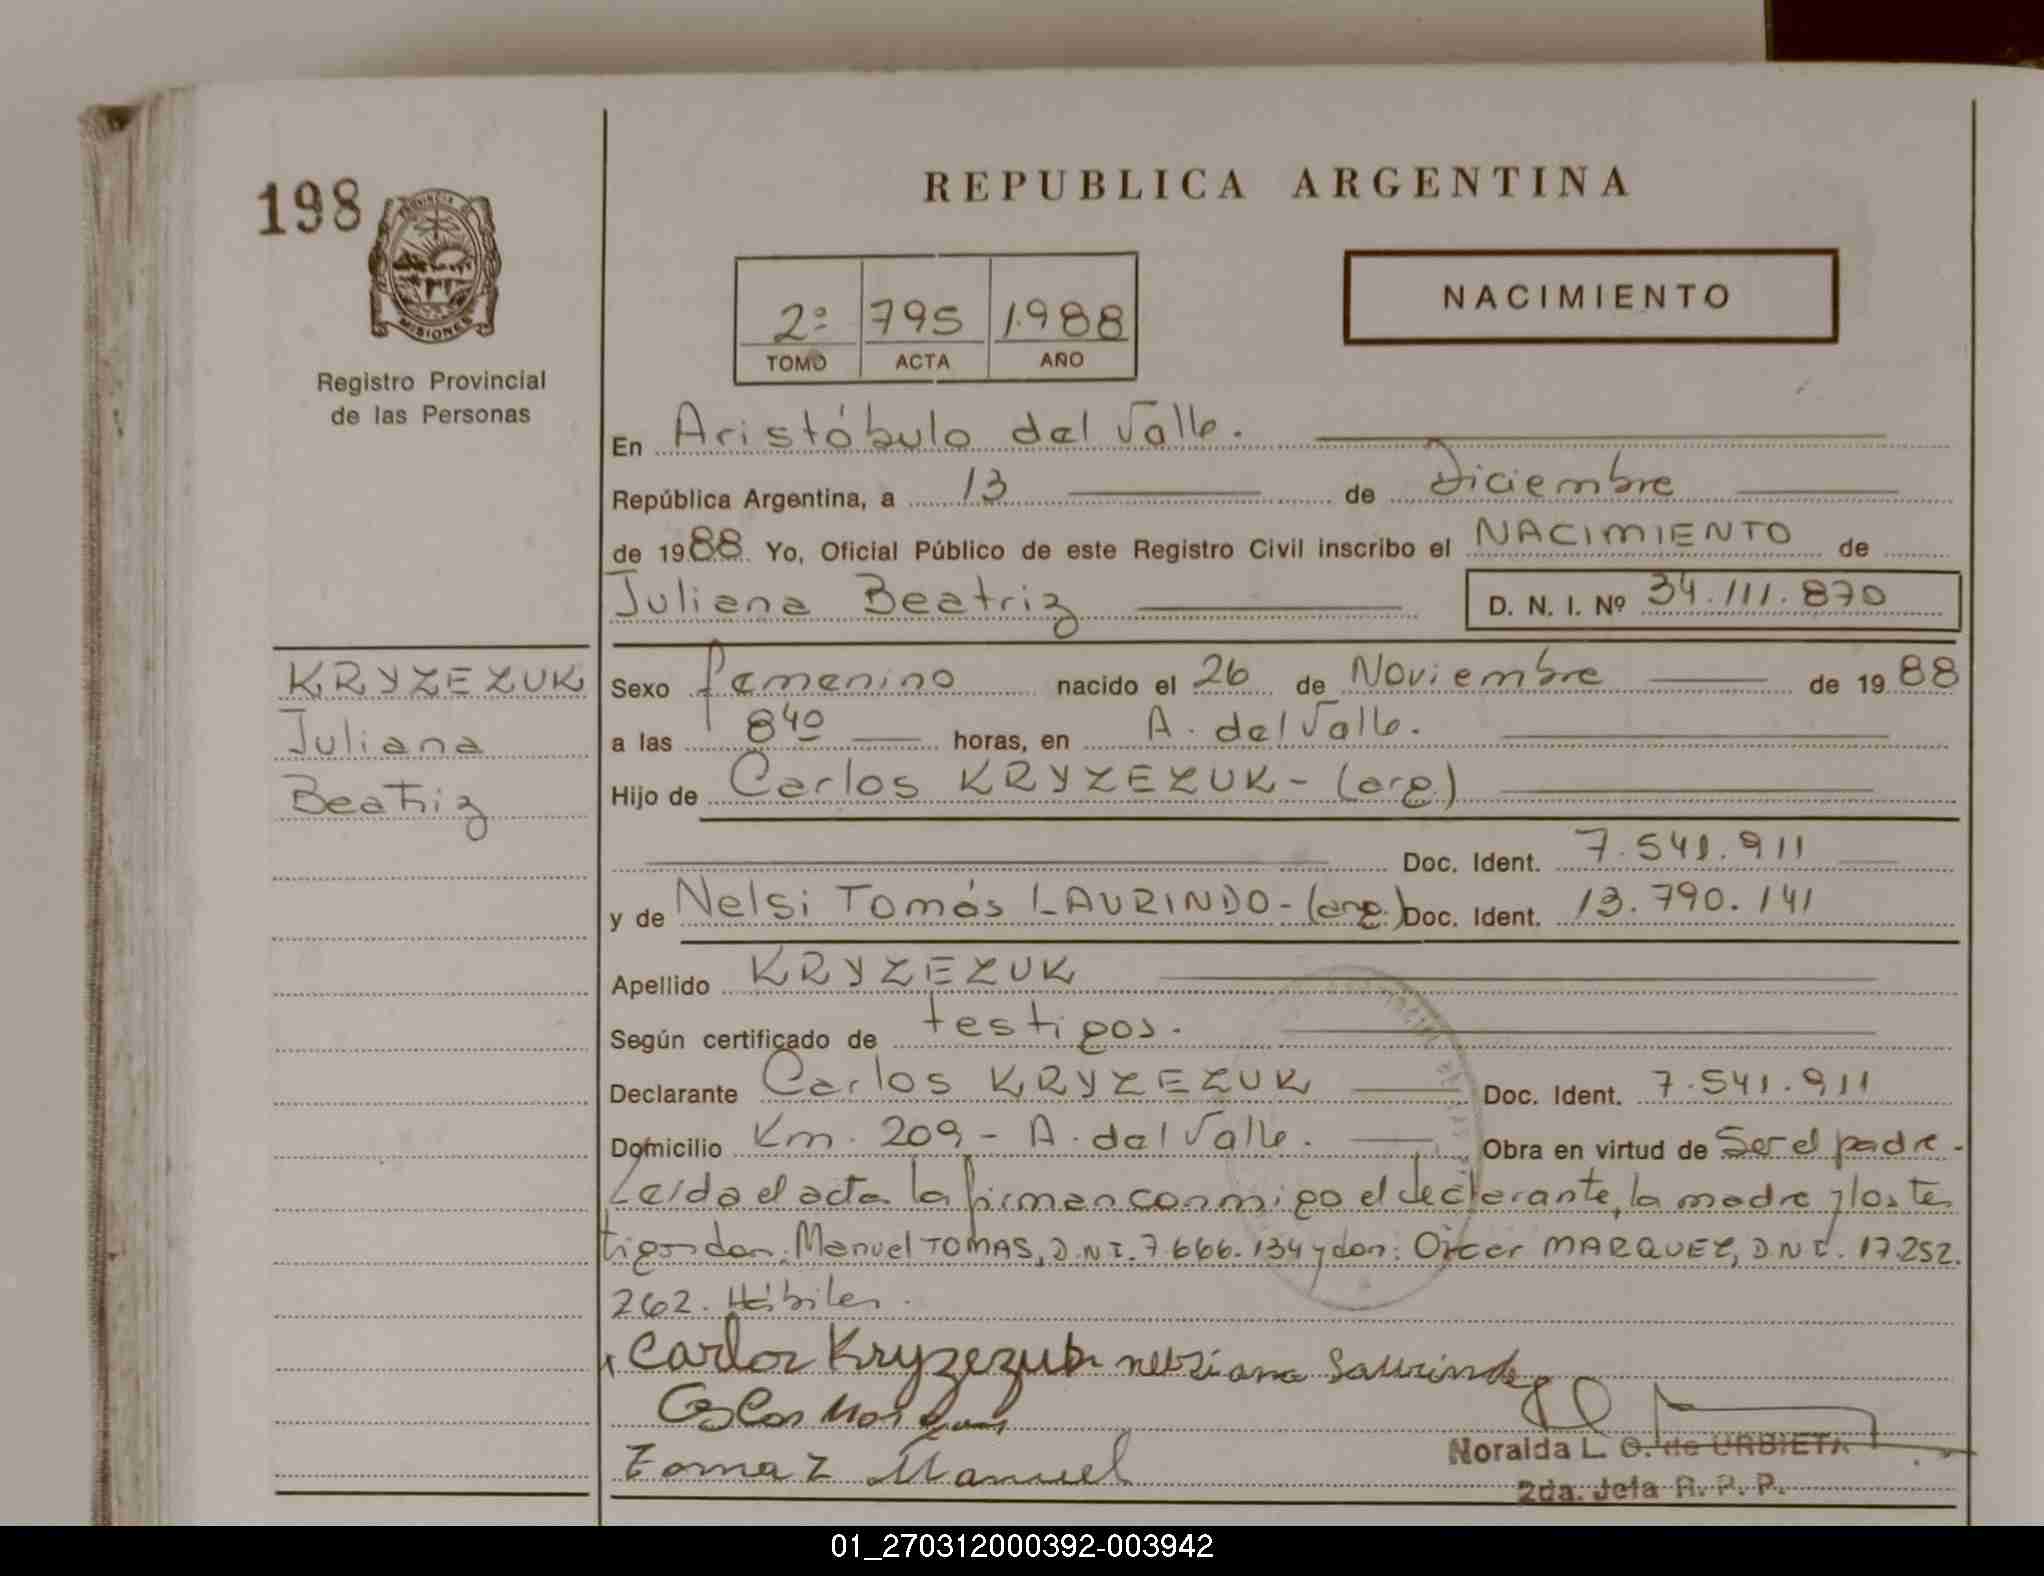 198
PROVINCIA DE
MISIONES
Registro Provincial
de las Personas
KRYZEZUK
Juliana
Beatriz
REPUBLICA ARGENTINA
2º 795 1.988
TOMO ACTA AÑO
NACIMIENTO
En Aristóbulo del Valle.
República Argentina, a 13 de Diciembre
de 1988 Yo, Oficial Público de este Registro Civil inscribo el NACIMIENTO de
Juliana Beatriz D. N. I. Nº 34.111.870
Sexo femenino nacido el 26 de Noviembre de 1988
a las 8 40 horas, en A. del Valle.
Hijo de Carlos KRYZEZUK - (arg.)
Doc. Ident. 7.541.911
y de Nelsi Tomás LAURINDO - (arg.) Doc. Ident. 13.790.141
Apellido KRYZEZUK
Según certificado de testigos.
Declarante Carlos KRYZEZUK Doc. Ident. 7.541.911
Domicilio Km. 209 - A. del Valle. Obra en virtud de Ser el padre -
Leída el acta la firman conmigo el declarante, la madre y los tes
tigos don: Manuel TOMAS, D.N.I. 7.666.134 y don: Oscar MARQUEZ, D.N.I. 17.252.
262. Hábiles.
Carlos Kryzezuk
Tomaz Manuel
Noralda L. O. de URBIETA
2da. Jefa R. P. P.
01_270312000392-003942